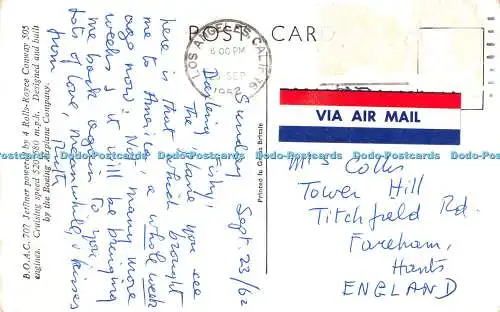 POST CARD
LOS ANGELES, CALIF.
6:00 PM
SEP
1962
VIA AIR MAIL
B.O.A.C. 707 Jetliner powered by 4 Rolls-Royce Conway 505
engines. Cruising speed 520/580 m.p.h. Designed and built
by the Boeing Airplane Company.
Printed in Great Britain
Sunday Sept. 23/62
Darling
The plane you see
here is that which brought
me to America, a whole week
ago now! Not many more
weeks & it will be bringing
me back again to you.
Lots of love, meanwhile, & kisses
from
Mrs Colls
Tower Hill
Titchfield Rd.
Fareham,
Hants
ENGLAND
Postcards-Download